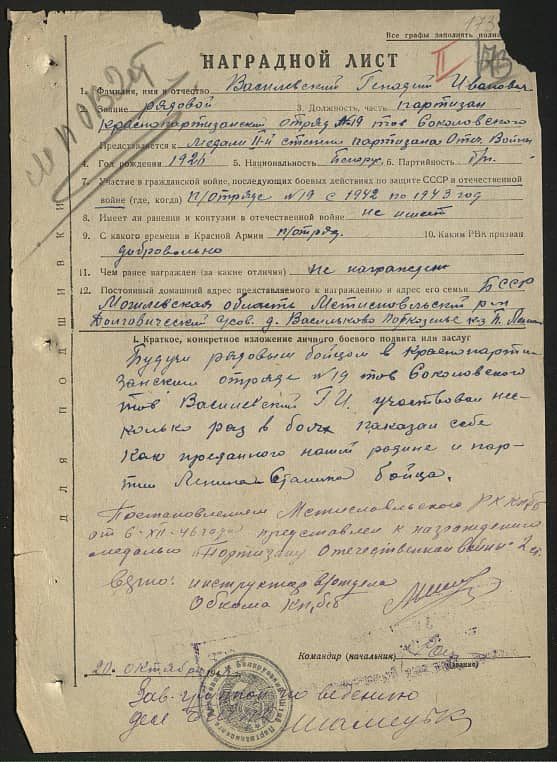 173
Все графы заполнять полно
НАГРАДНОЙ ЛИСТ
II
1. Фамилия, имя и отчество Василевский Генадий Иванович
Звание рядовой 3. Должность, часть партизан
Краснопартизанский отряд №19 тов Соколовского
Представляется к медали II-й степени партизана Отеч. Войны
4. Год рождения 1926 5. Национальность белорус 6. Партийность б/п.
7. Участие в гражданской войне, последующих боевых действиях по защите СССР и отечественной
войне (где, когда) п/отряде №19 с 1942 по 1943 год
8. Имеет ли ранения и контузии в отечественной войне не имеет
9. С какого времени в Красной Армии п/отряд 10. Каким РВК призван
добровольно
11. Чем ранее награжден (за какие отличия) не награжден
12. Постоянный домашний адрес представляемого к награждению и адрес его семьи БССР
Могилевская область Мстиславльский р-н
Долговичский с/сов. д. Васильково
I. Краткое, конкретное изложение личного боевого подвига или заслуг
Будучи рядовым бойцом в краснопарти
занским отряде №19 тов Соколовского
тов Василевский Г.И. участвовал нес-
колько раз в боях показал себя
как преданного нашей родине и пар-
тии Ленина Сталина бойца.
Постановлением Мстиславльского РК КП(б)Б
от 6-XII-46 года представлен к награждению
медалью "Партизану Отечественной войны" 2 ст.
инструктор в/отдела
Обкома КП(б)Б
Командир (начальник)
(звание)
20. октября 194
Зав. группой по ведению
дел
для подшивки